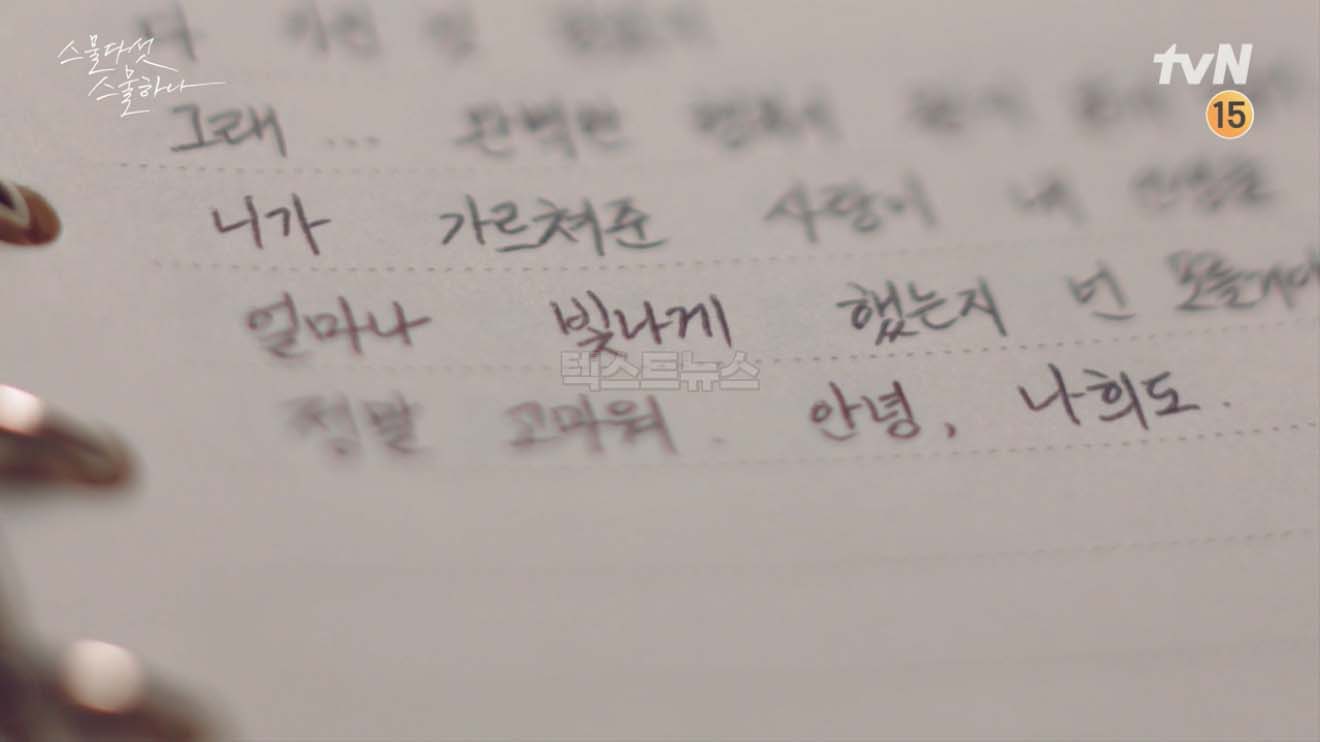 스물다섯
스물하나
tvN
15
그래 ... 완벽한 행복이
니가 가르쳐준 사랑이 내 인생을
얼마나 빛나게 했는지 넌 모를거야
정말 고마워. 안녕, 나희도.
텍스트뉴스